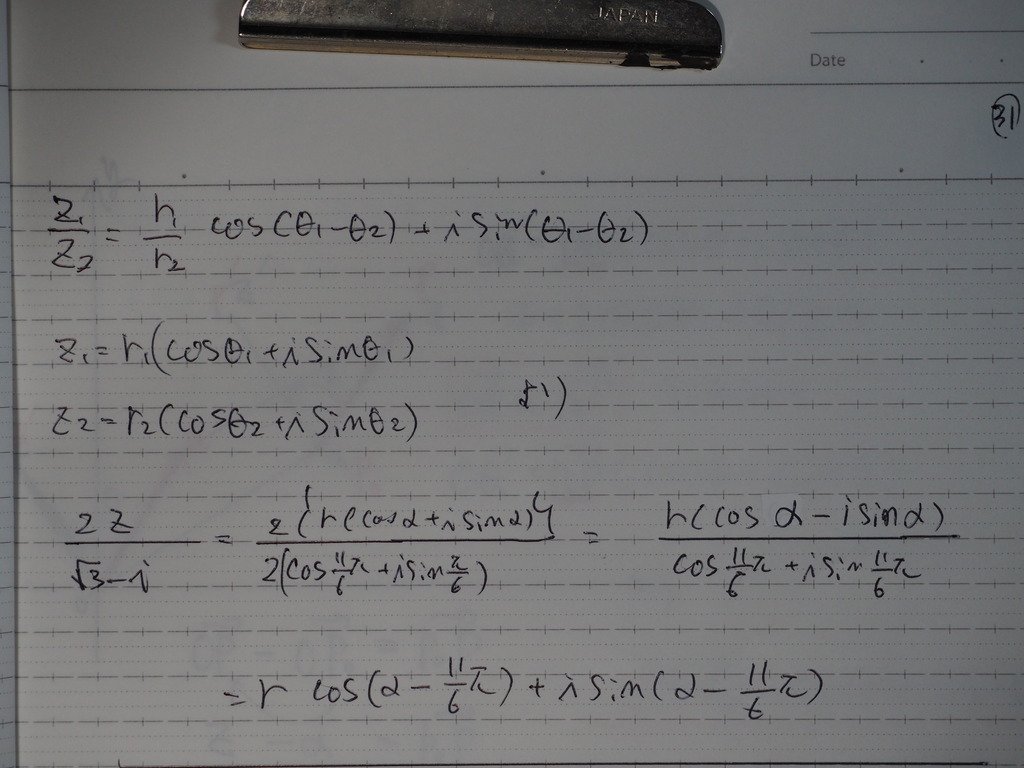 JAPAN
Date
㉛
z₁/z₂ = r₁/r₂ cos(θ₁-θ₂) + i sin(θ₁-θ₂)
z₁ = r₁(cosθ₁ + i sinθ₁)
z₂ = r₂(cosθ₂ + i sinθ₂) より)
2z/(√3-i) = 2{r(cosα + i sinα)}/2(cos 11/6 π + i sin π/6) = r(cos α - i sin α)/(cos 11/6 π + i sin 11/6 π)
= r cos(α - 11/6 π) + i sin(α - 11/6 π)